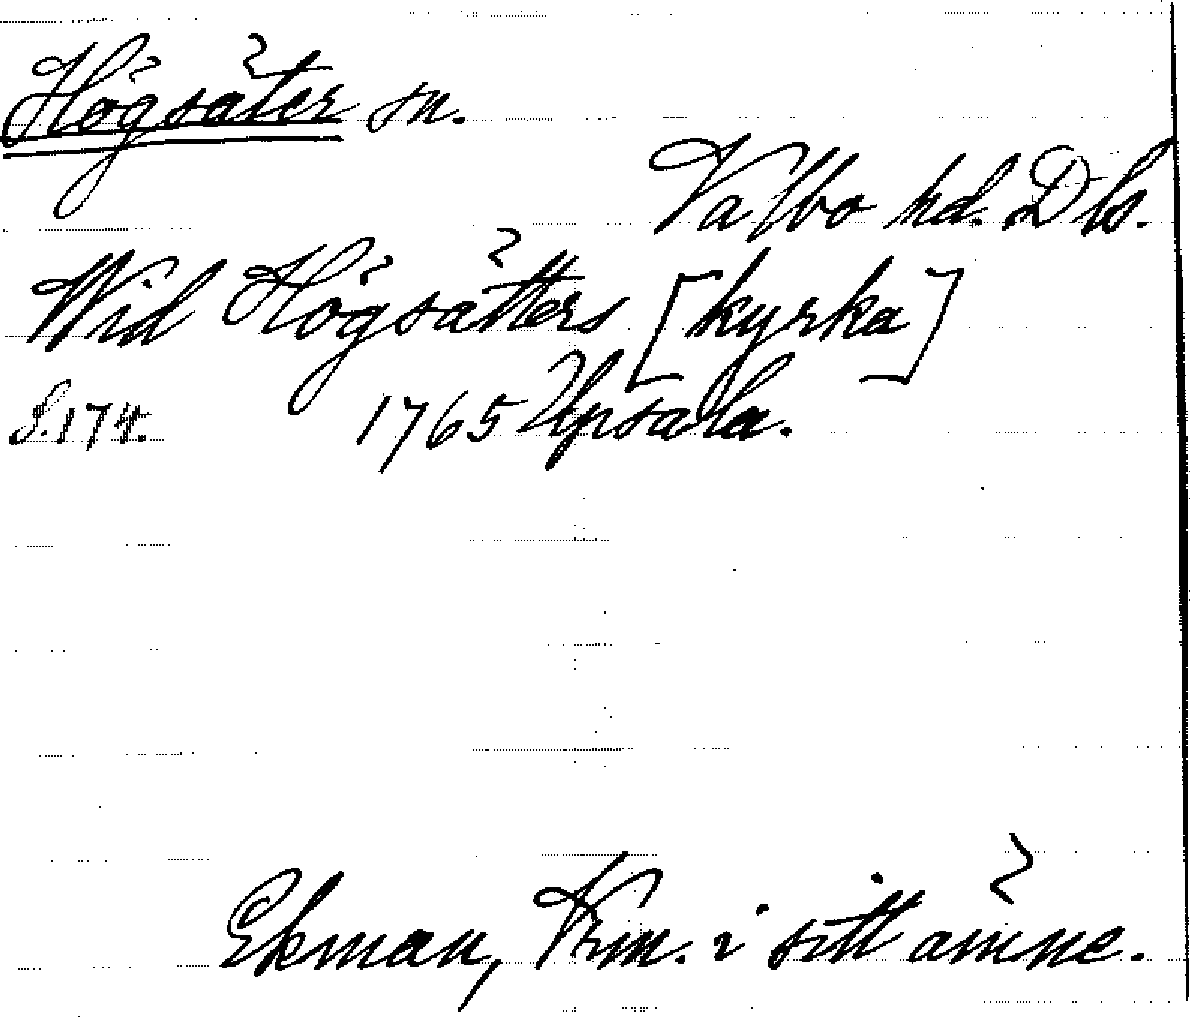 Högsäter sn.
Valbo hd. Dls.
Wid Högsätters [kyrka]
S. 174. 1765 Upsala.
Ekman, Vm. i sitt ämne.